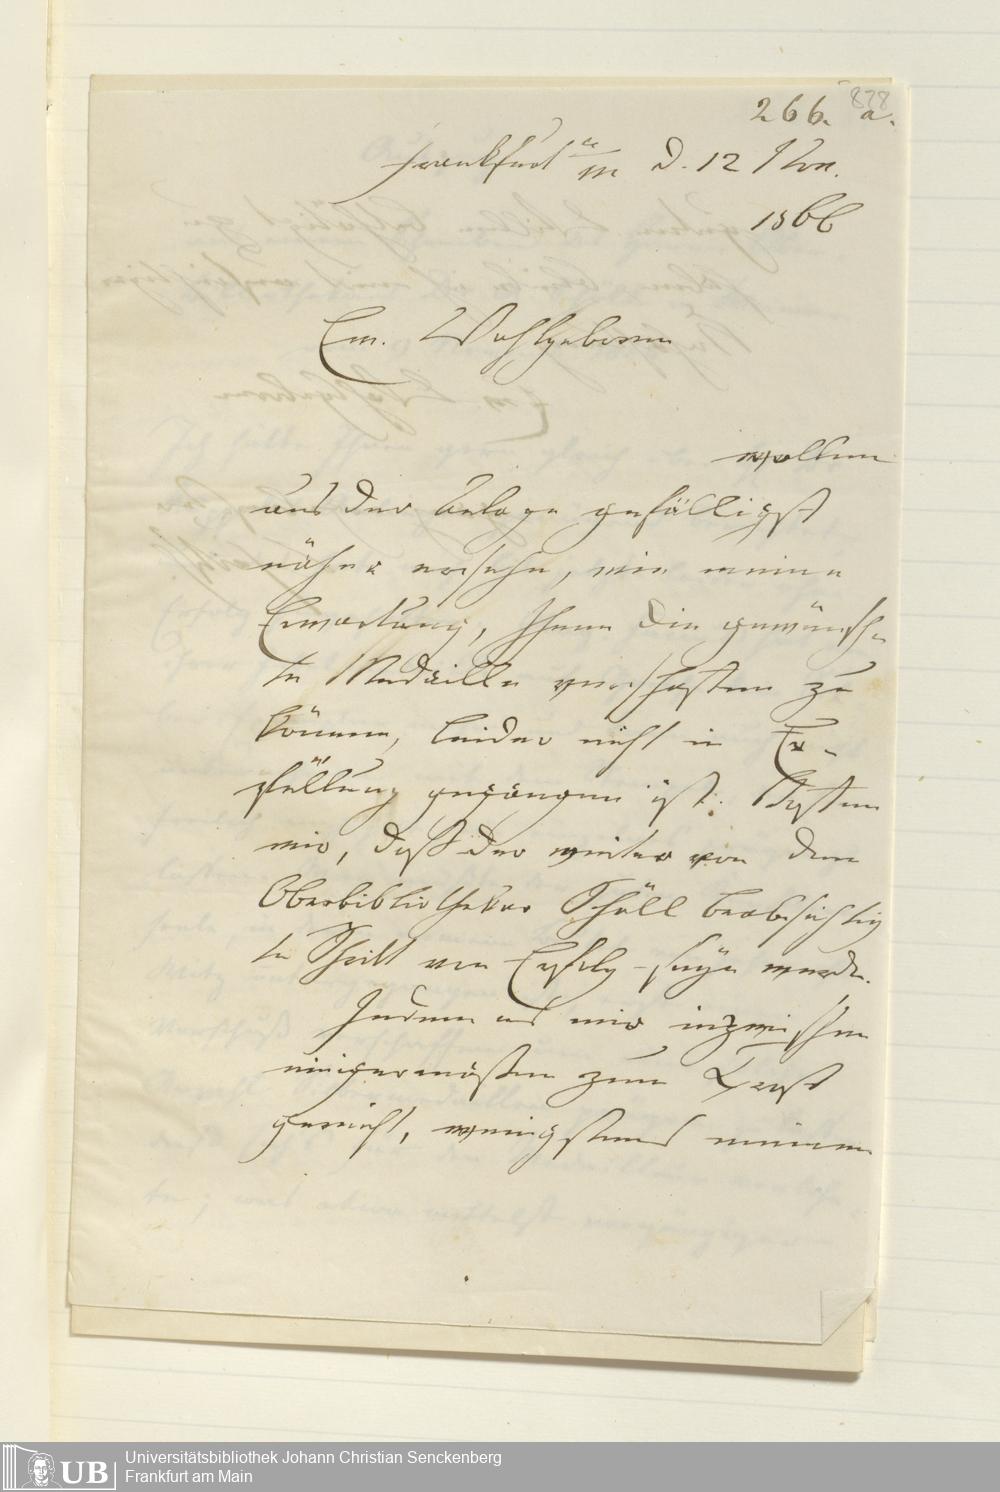 266. a.
878
Frankfurt a/M d. 12 Nov.
1866
Ew. Wohlgeboren
wollen
aus der Anlage gefälligst
näher ersehn, wie meine
Erwartung, Ihnen die gewünsch-
te Medaille verschaffen zu
können, leider nicht in Er-
füllung gegangen ist.
mir, daß der weiter von dem
Oberbibliothekar Schöll beabsichtig
te Schritt von Erfolg seyn werde.
Indem es mir inzwischen
einigermaßen zum Trost
gereicht, wenigstens meinen
Universitätsbibliothek Johann Christian Senckenberg
Frankfurt am Main
UB